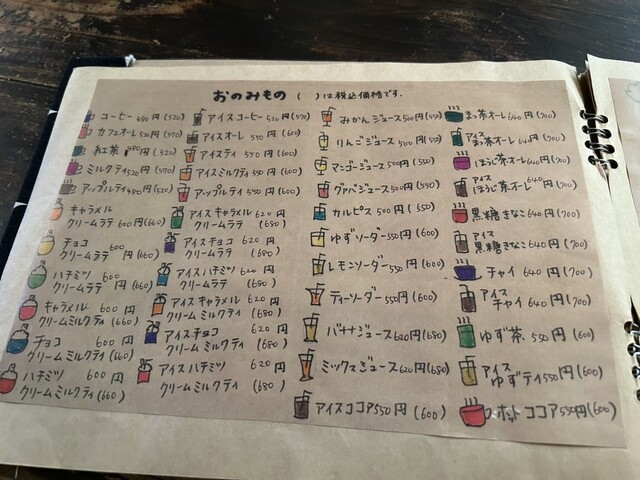 おのみもの ( )は税込価格です.
コーヒー 480円(520)
カフェオーレ 520円(570)
紅茶 480円(520)
ミルクティ 520円(570)
アップルティ 480円(520)
キャラメル
クリームラテ 600円(660)
チョコ 600円
クリームラテ (660)
ハチミツ 600円
クリームラテ (660)
キャラメル 600円
クリームミルクティ (660)
チョコ 600円
クリームミルクティ (660)
ハチミツ 600円
クリームミルクティ (660)
アイスコーヒー 520円(570)
アイスオーレ 550円(600)
アイスティ 550円(600)
アイスミルクティ 550円(600)
アップルティ 550円(600)
アイスキャラメル 620円
クリームラテ (680)
アイスチョコ 620円
クリームラテ (680)
アイスハチミツ 620円
クリームラテ (680)
アイスキャラメル 620円
クリームミルクティ (680)
アイスチョコ 620円
クリームミルクティ (680)
アイスハチミツ 620円
クリームミルクティ (680)
みかんジュース 500円(550)
りんごジュース 500円(550)
マンゴージュース 500円(550)
グァバジュース 500円(550)
カルピス 500円(550)
ゆずソーダー 550円(600)
レモンソーダー 550円(600)
ティーソーダー 550円(600)
バナナジュース 620円(680)
ミックスジュース 620円(680)
アイスココア 550円(600)
まっ茶オーレ 640円(700)
アイス
まっ茶オーレ 640円(700)
ほうじ茶オーレ 640円(700)
アイス
ほうじ茶オーレ 640円(700)
黒糖きなこ 640円(700)
アイス
黒糖きなこ 640円(700)
チャイ 640円(700)
アイス
チャイ 640円(700)
ゆず茶 550円(600)
アイス
ゆずティ 550円(600)
ホットココア 550円(600)